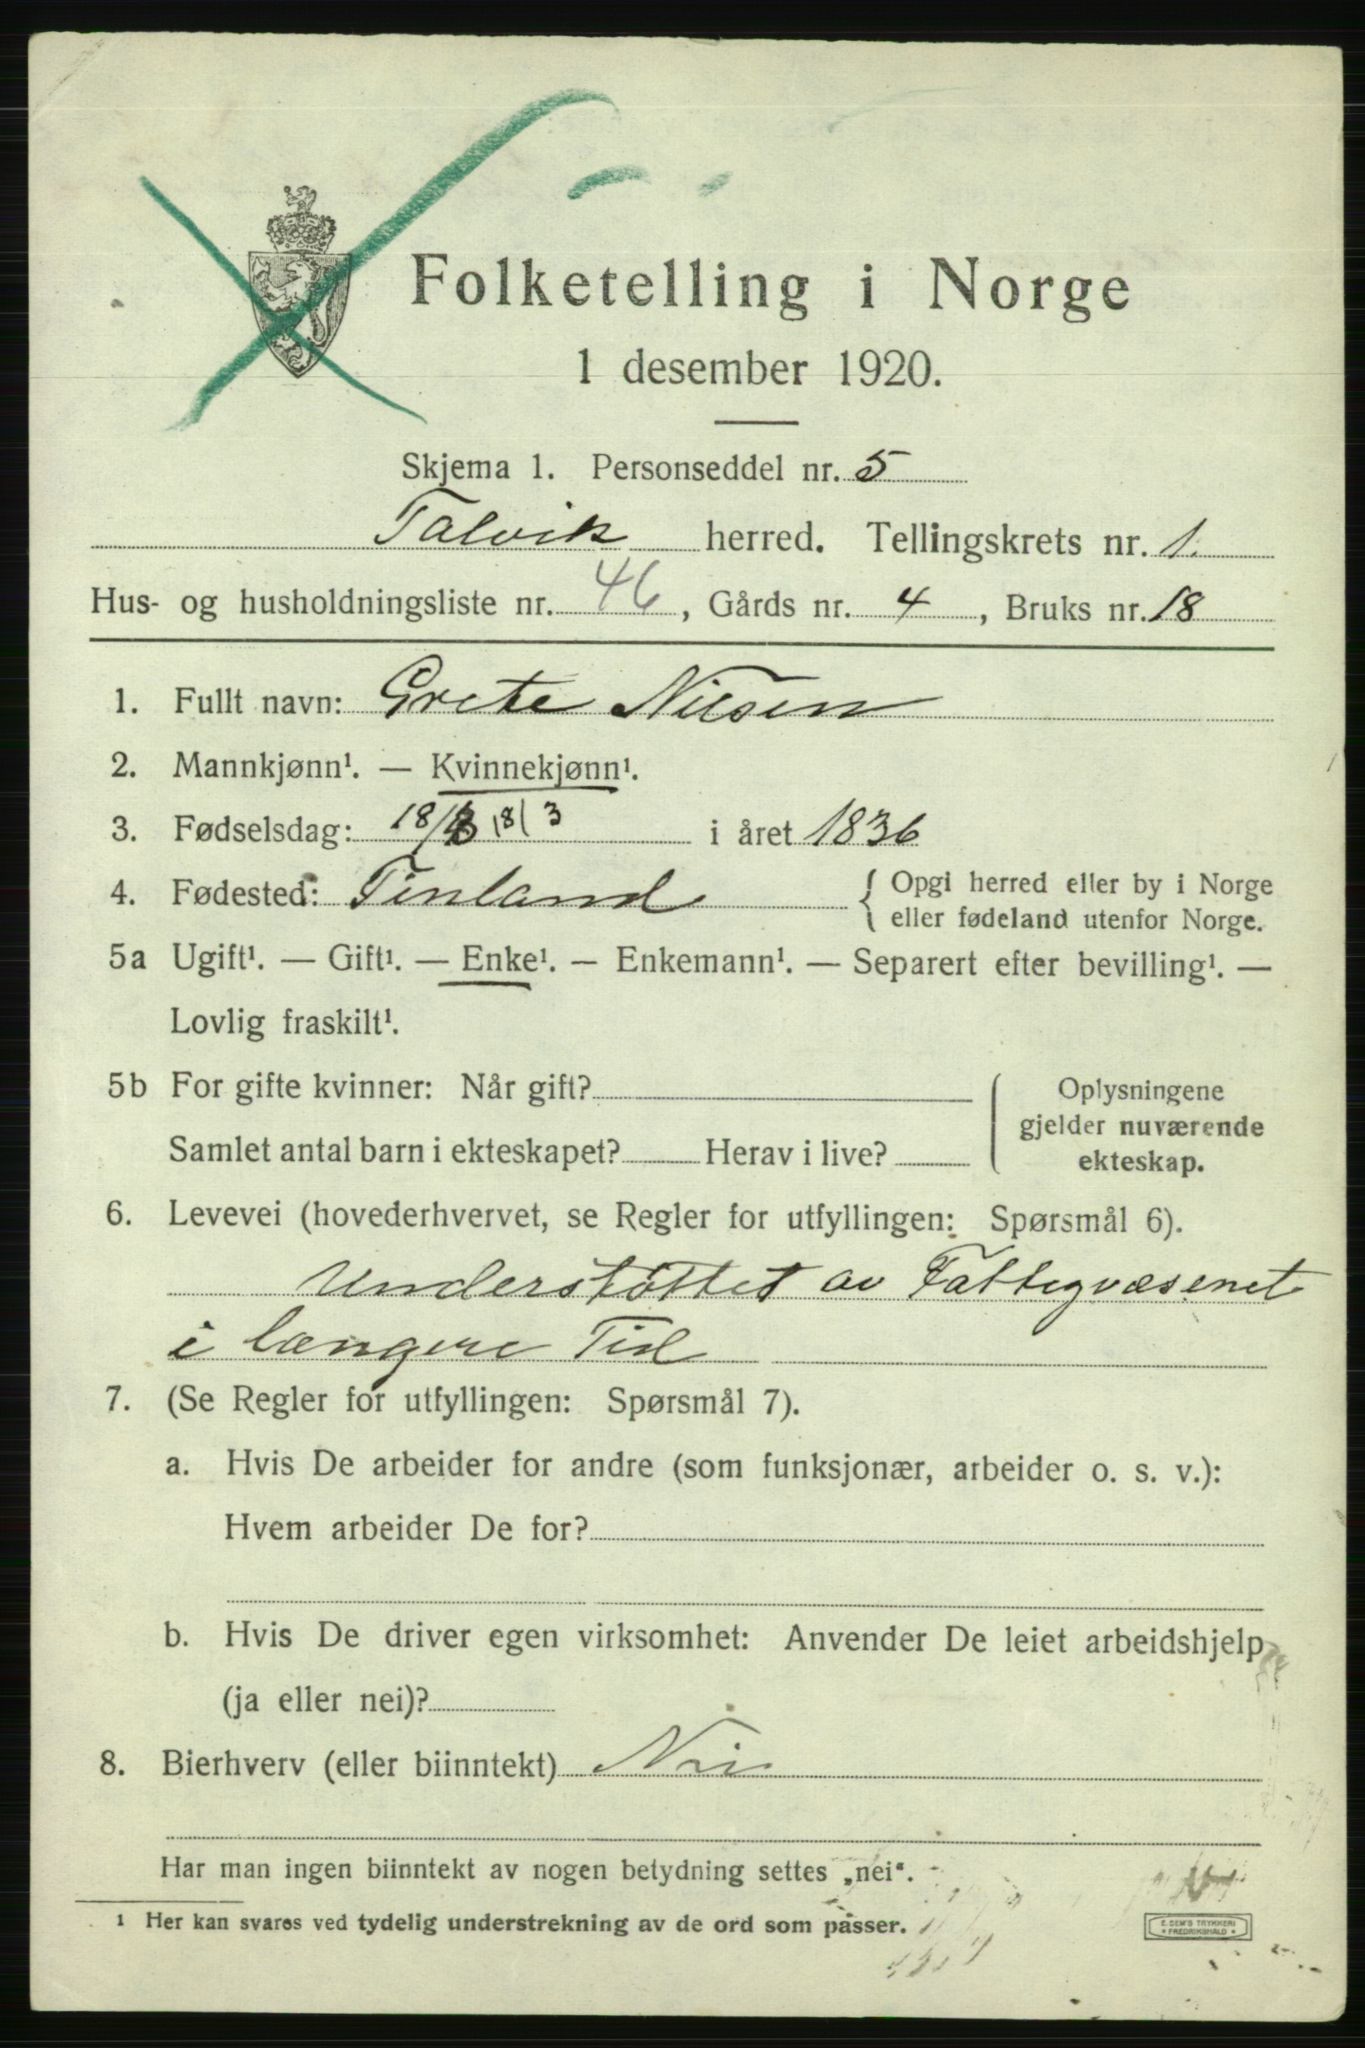 Folketelling i Norge
1 desember 1920.
Skjema 1. Personseddel nr. 5
Talvik herred. Tellingskrets nr. 1.
Hus- og husholdningsliste nr. 46, Gårds nr. 4, Bruks nr. 18
1. Fullt navn: Grete Nilsen
2. Mannkjønn¹. — Kvinnekjønn¹.
3. Fødselsdag: 18/3 i året 1836
4. Fødested: Finland { Opgi herred eller by i Norge
eller fødeland utenfor Norge.
5a Ugift¹. — Gift¹. — Enke¹. — Enkemann¹. — Separert efter bevilling¹. —
Lovlig fraskilt¹.
5b For gifte kvinner: Når gift? Oplysningene
gjelder nuværende
Samlet antal barn i ekteskapet? Herav i live? ekteskap.
6. Levevei (hovederhvervet, se Regler for utfyllingen: Spørsmål 6).
Understöttet av Fattigvæsenet
i længere Tid
7. (Se Regler for utfyllingen: Spørsmål 7).
a. Hvis De arbeider for andre (som funksjonær, arbeider o. s. v.):
Hvem arbeider De for?
b. Hvis De driver egen virksomhet: Anvender De leiet arbeidshjelp
(ja eller nei)?
8. Bierhverv (eller biinntekt) Nei
Har man ingen biinntekt av nogen betydning settes „nei".
¹ Her kan svares ved tydelig understrekning av de ord som passer.
E. SEM'S TRYKKERI
* FREDRIKSHALD *